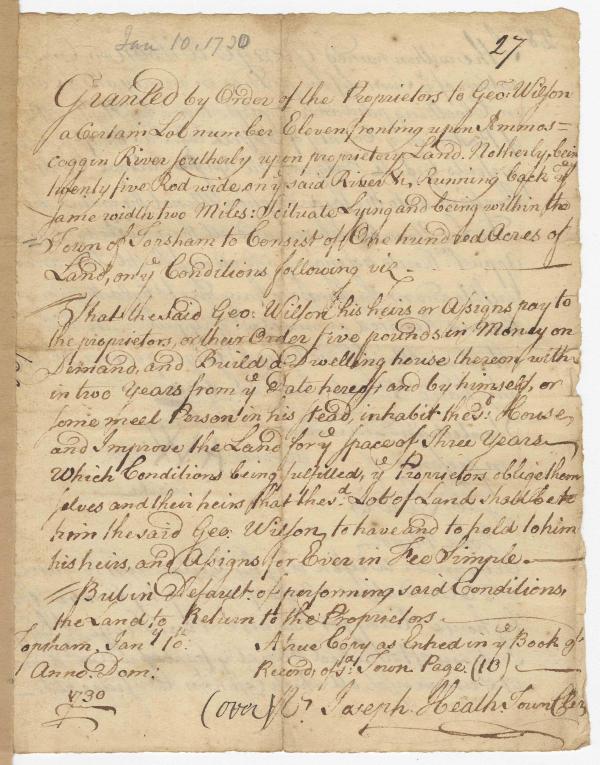 Jan 10. 1730
27
Granted by Order of the Proprietors to Geo: Wilson
a Certain Lot number Eleven fronting upon Ammos=
coggin River southerly upon proprietory Land. Notherly, being
twenty five Rod wide, on ye said River &, Running back ye
same width two Miles: Scituate Lying and being within the
Town of Torsham to Consist of One hundred Acres of
Land, on ye Conditions following viz.
That the said Geo: Wilson his heirs or Assigns pay to
the proprietors, or their Order five pounds in Money on
Dimand, and Build a dwelling house thereon with=
in two Years from ye Date hereof; and by himself, or
some meet Person in his stead, inhabit the sd: House,
and Improve the Land for ye space of Three Years
Which Conditions being fulfilled, ye Proprietors oblige them
selves and their heirs that the sd Lot of Land shall be to
him the said Geo: Wilson, to have and to hold to him
his heirs, and Assigns for Ever in Fee Simple.
But in Default of performing said Conditions,
the Land to Return to the Proprietors
Topsham, Jany 10:
Anno: Dom:
1730
A true Copy as Entred in ye Book of
Records, of sd Town Page: (10)
(over) Pr Joseph Heath Town Cler